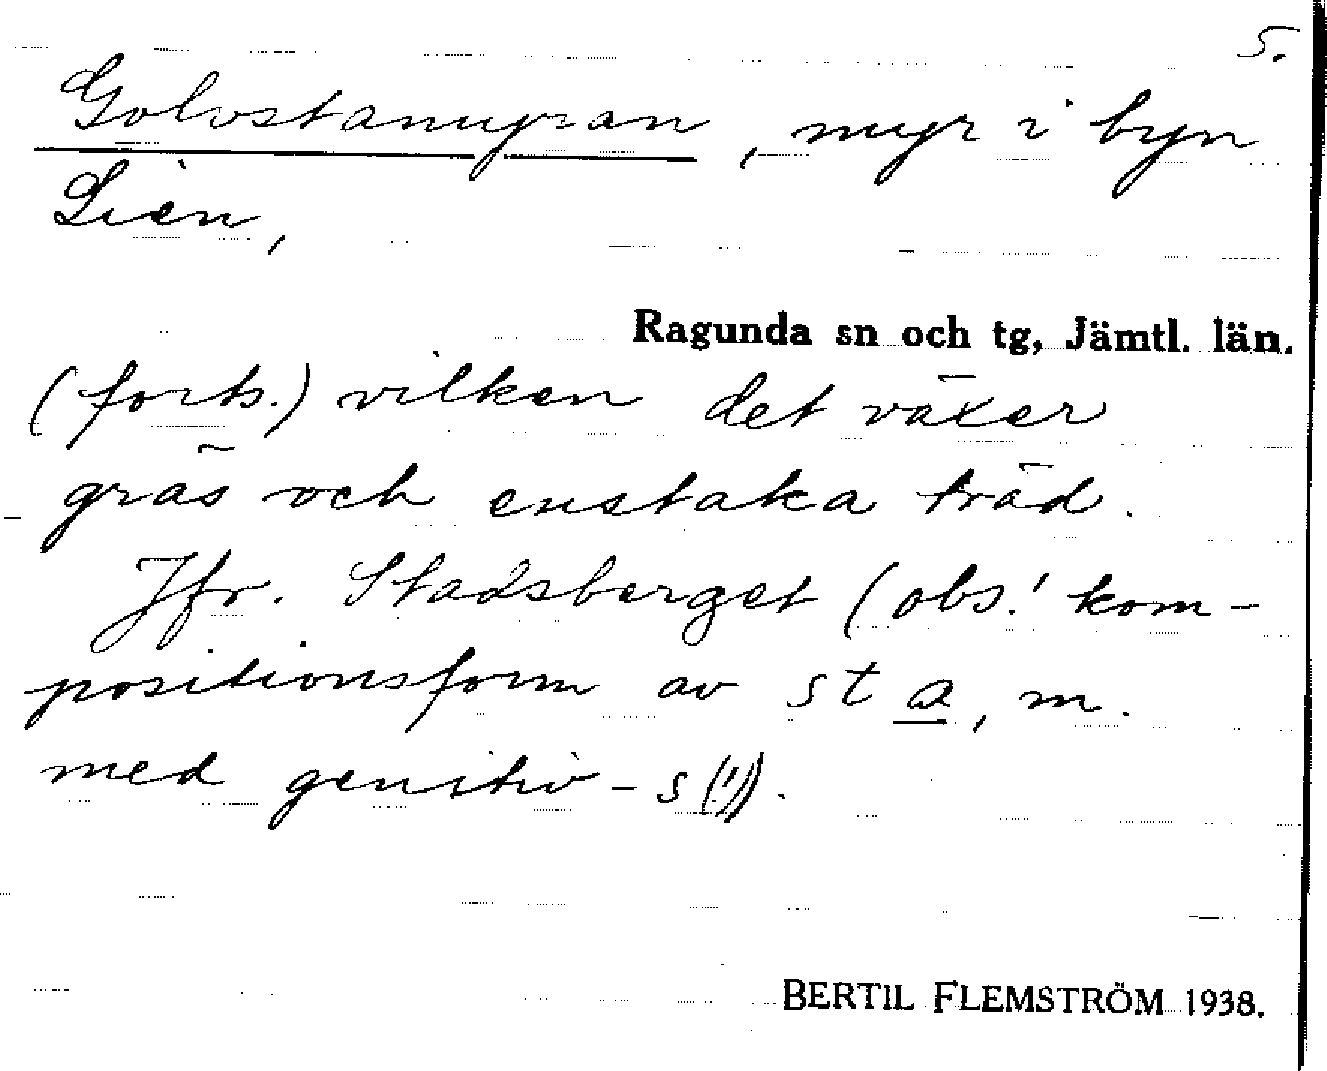 5.
Golvstamyran, myr i byn
Lien,
Ragunda sn och tg, Jämtl. län.
(forts.) vilken det växer
gräs och enstaka träd.
Jfr. Stadsberget (obs.! kom-
positionsform av sta, m.
med genitiv-s(!)).
BERTIL FLEMSTRÖM 1938.